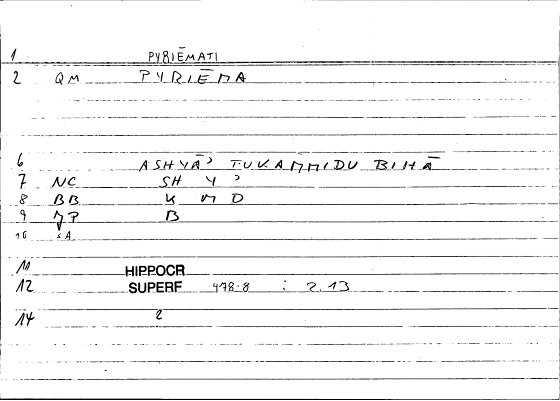 1 PYRIĒMATI
2 QM PYRIĒMA
6 ASHYĀʾ TUKAMMIDU BIHĀ
7 NC SH Y ʾ
8 BB K M D
9 JP B
10 SA
11 HIPPOCR
12 SUPERF 478.8 : 2.13
14 2